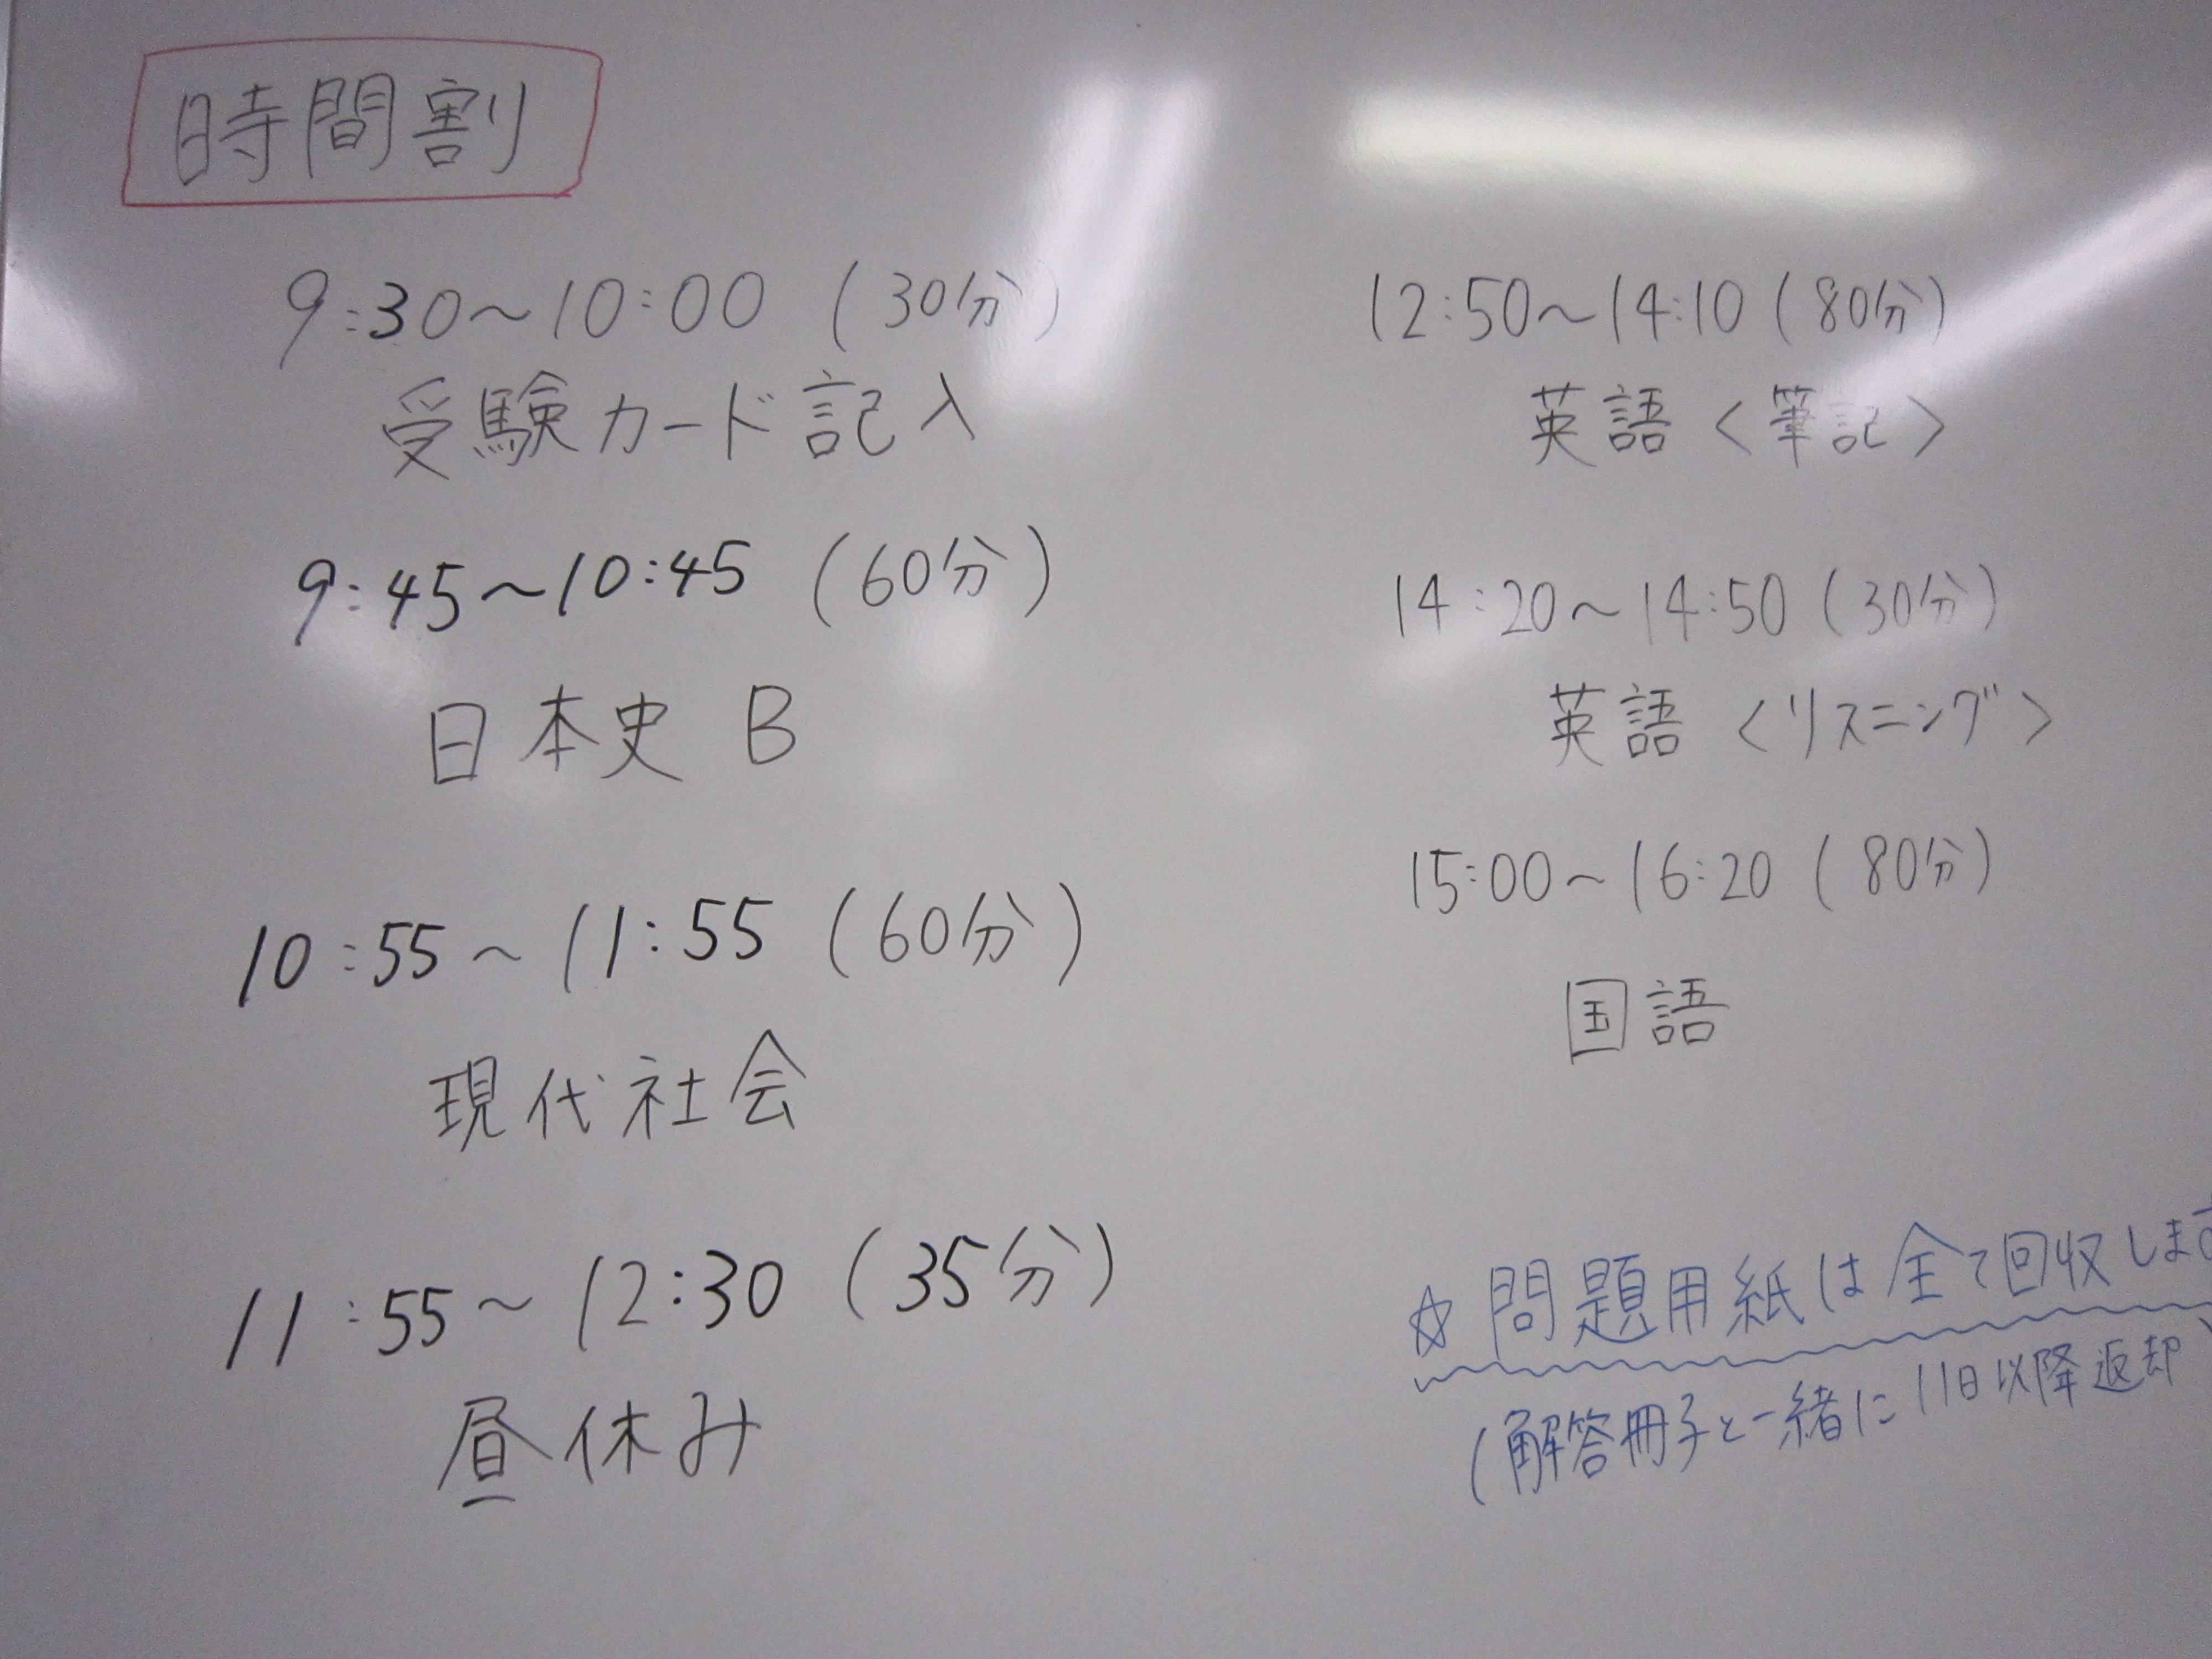 時間割
9:30～10:00 (30分)
受験カード記入
9:45～10:45 (60分)
日本史 B
10:55～11:55 (60分)
現代社会
11:55～12:30 (35分)
昼休み
12:50～14:10 (80分)
英語〈筆記〉
14:20～14:50 (30分)
英語〈リスニング〉
15:00～16:20 (80分)
国語
☆問題用紙は全て回収します
(解答冊子と一緒に11日以降返却)